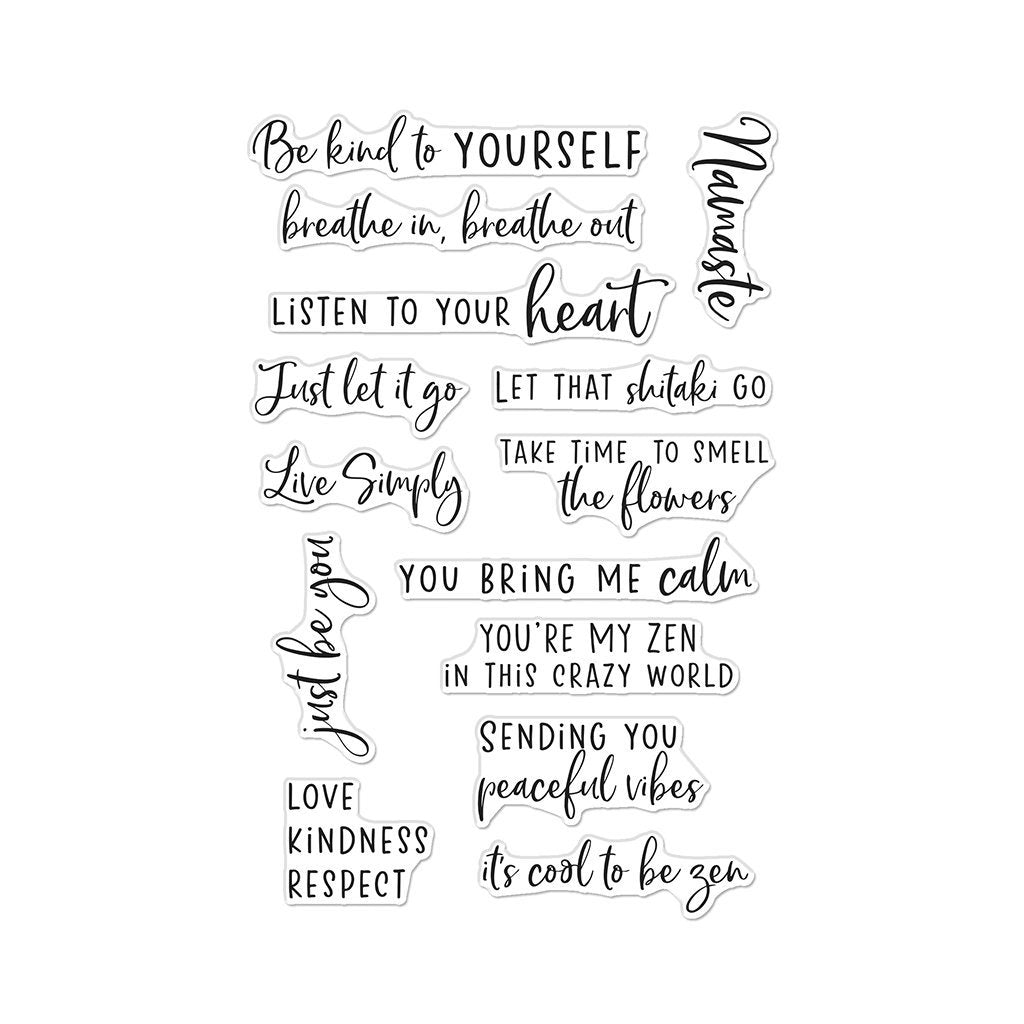 Be kind to YOURSELF
Namaste
breathe in, breathe out
LiSTEN TO YOUR heart
Just let it go
LET THAT shitaki GO
Live Simply
TAKE TiME TO SMELL
the flowers
just be you
YOU BRiNG ME calm
YOU'RE MY ZEN
iN THiS CRAZY WORLD
SENDiNG YOU
peaceful vibes
LOVE
KiNDNESS
RESPECT
it's cool to be zen